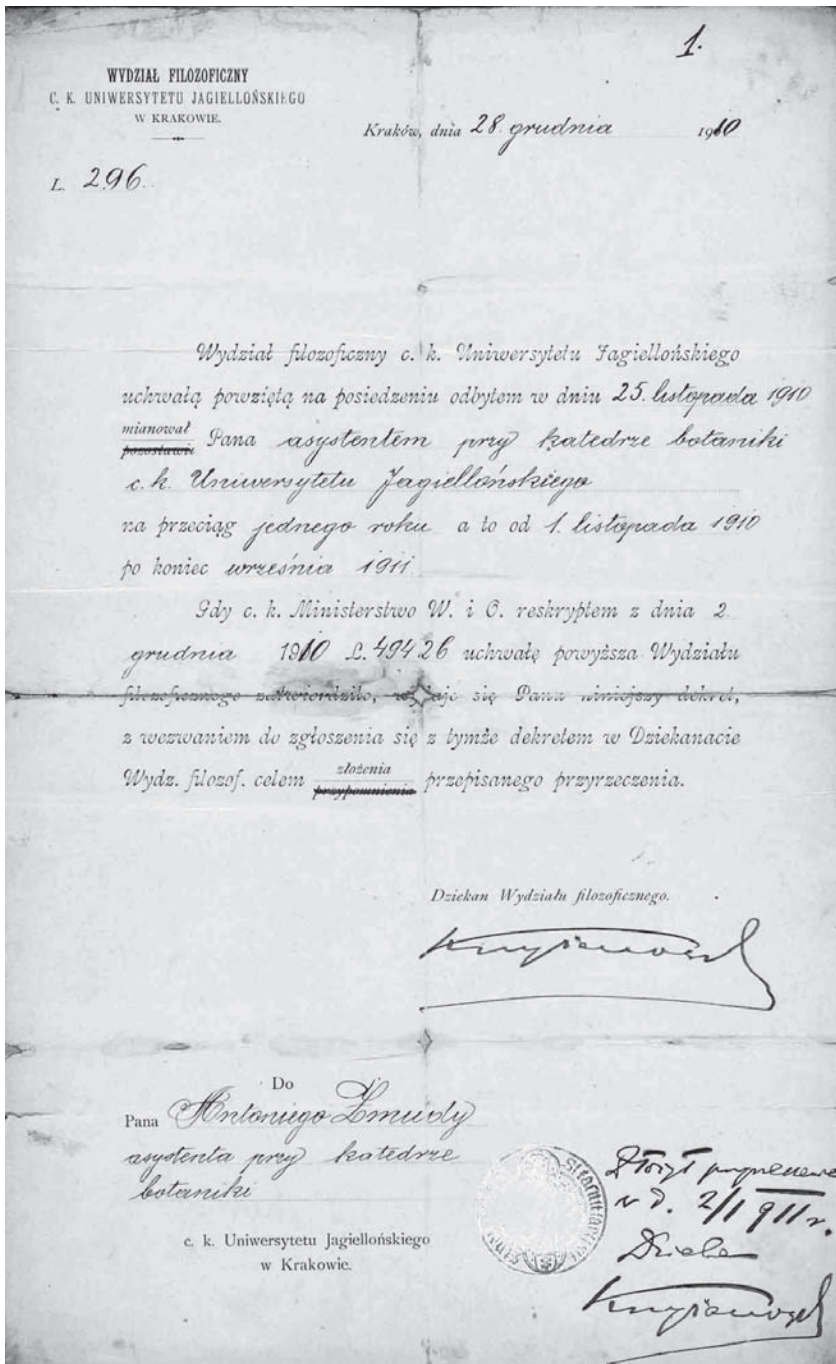 1.
WYDZIAŁ FILOZOFICZNY
C. K. UNIWERSYTETU JAGIELLOŃSKIEGO
W KRAKOWIE.
Kraków, dnia 28. grudnia 1910
L. 296.
Wydział filozoficzny c. k. Uniwersytetu Jagiellońskiego
uchwałą powziętą na posiedzeniu odbytem w dniu 25. listopada 1910
mianował
pozostawił Pana asystentem przy katedrze botaniki
c. k. Uniwersytetu Jagiellońskiego
na przeciąg jednego roku a to od 1. listopada 1910
po koniec września 1911.
Gdy c. k. Ministerstwo W. i O. reskryptem z dnia 2.
grudnia 1910 L. 49426 uchwałę powyższa Wydziału
filozoficznego zatwierdziło, wydaje się Panu niniejszy dekret,
z wezwaniem do zgłoszenia się z tymże dekretem w Dziekanacie
Wydz. filozof. celem złożenia
przypomnienia przepisanego przyrzeczenia.
Dziekan Wydziału filozoficznego.
Do
Pana Antoniego Żmudy
asystenta przy katedrze
botaniki
c. k. Uniwersytetu Jagiellońskiego
w Krakowie.
w d. 2/I 911 r.